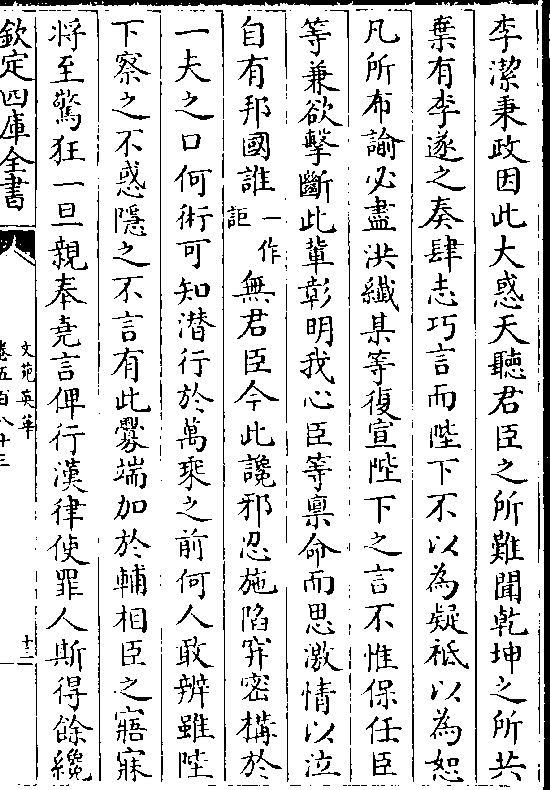 李潔秉政因此大惑天聽君臣之所難聞乾坤之所共
棄有李遂之奏肆志巧言而陛下不以為疑秪以為恕
凡所布諭必盡洪纎某等復宣陛下之言不惟保任臣
等兼欲撃斷此輩彰明我心臣等稟命而思激情以泣
自有邦國誰一作詎無君臣今此讒邪忍施陷穽密構於
一夫之口何術可知潜行於萬乗之前何人敢辨雖陛
下察之不惑隱之不言有此釁端加於輔相臣之寤寐
将至驚狂一旦親奉堯言俾行漢律使罪人斯得餘纔
欽定四庫全書
文苑英華
卷五百八十三
十二